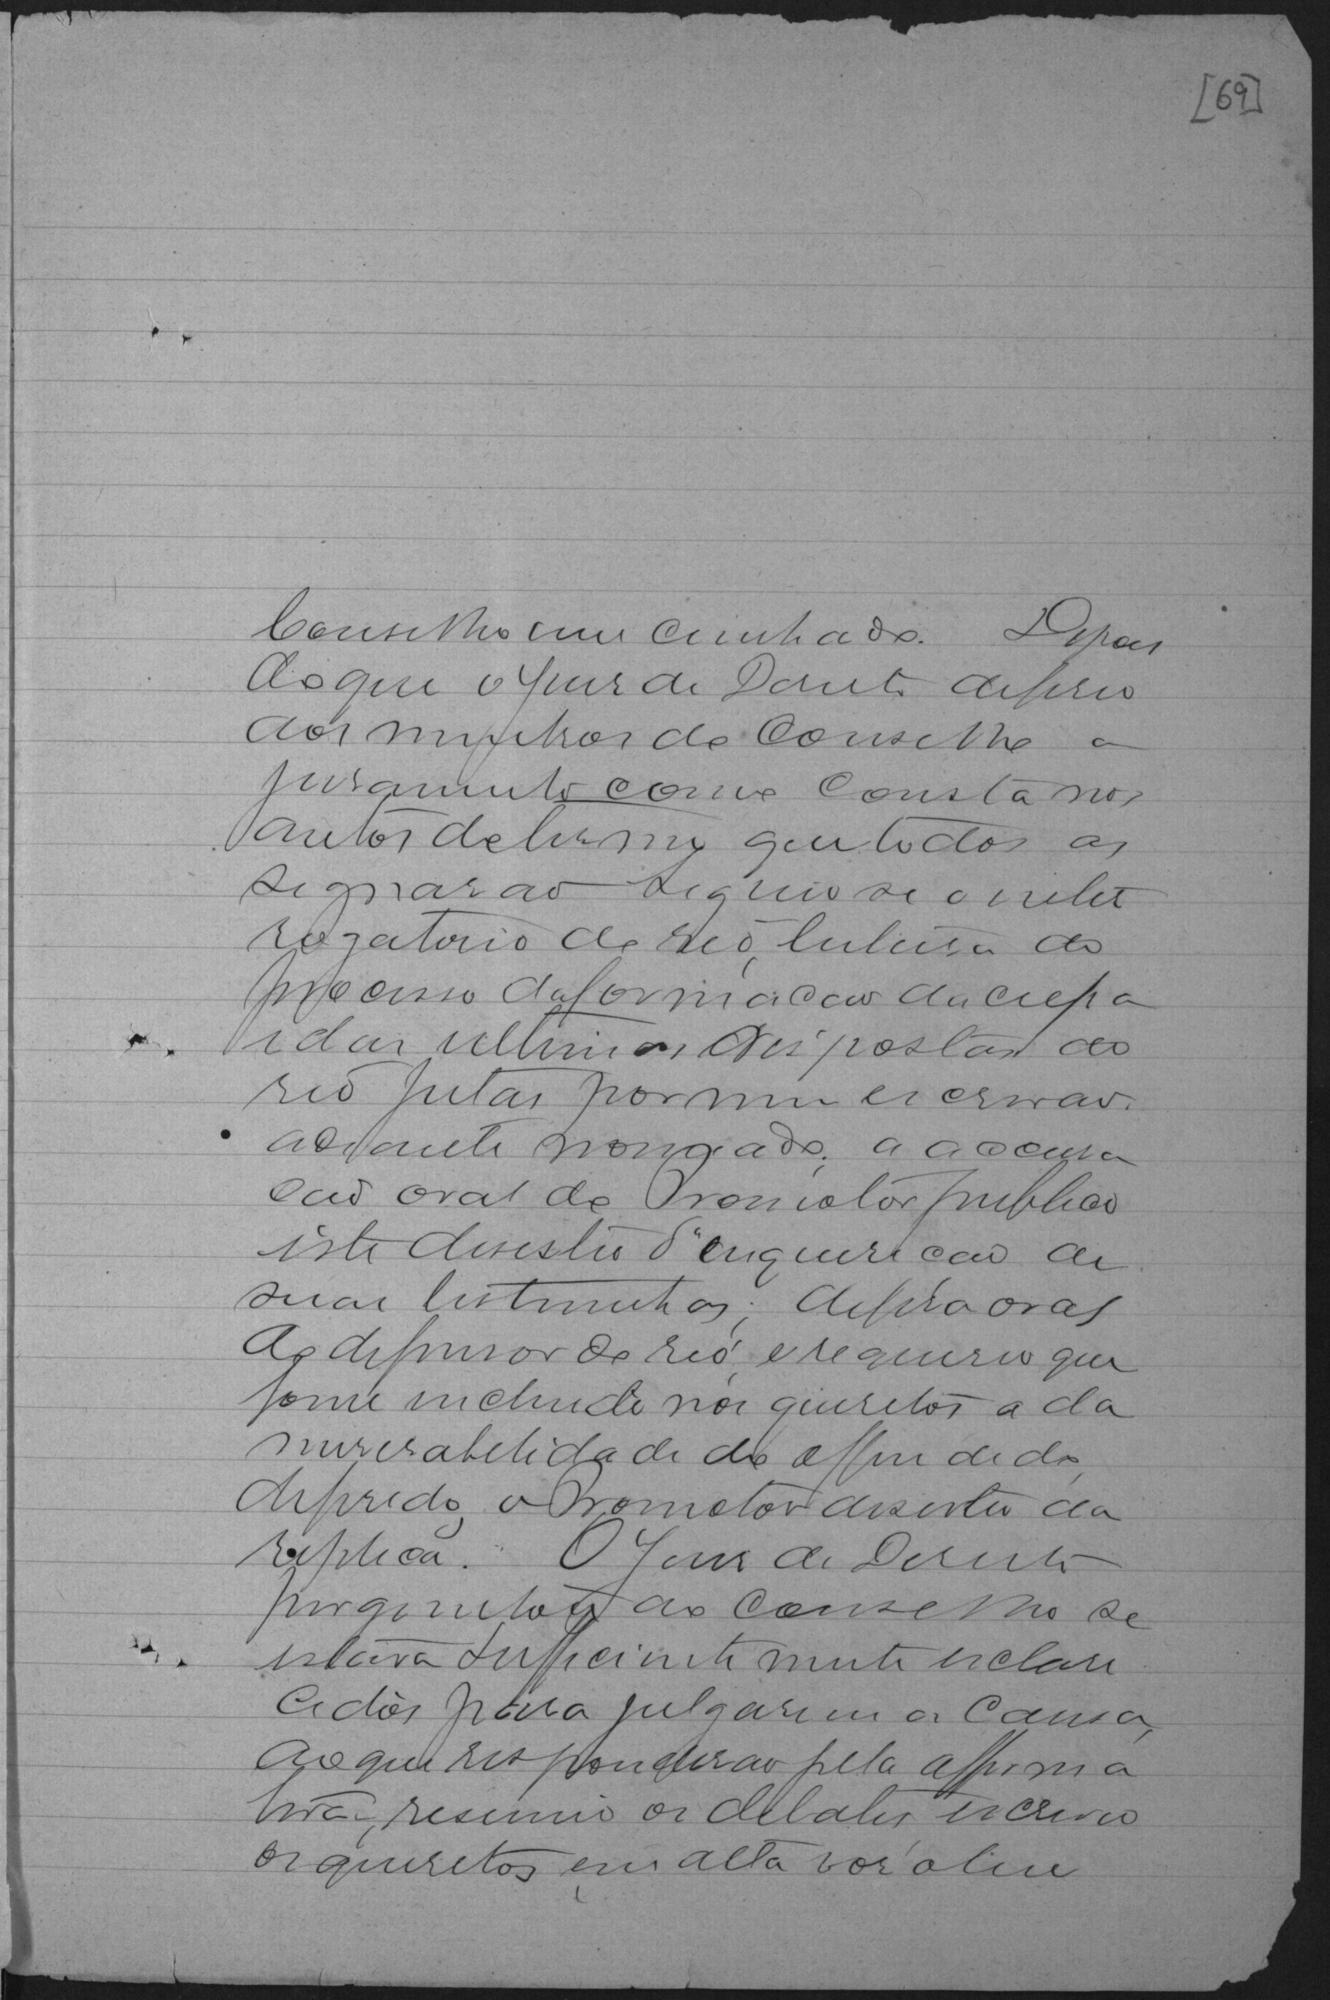 [69]
Conselho um cunhado. Depois
do que o Juis de Dereito deferio
aos membros do Conselho o
juramento como consta nos
autos de termo que todos as
signarao seguio se o inter
rogatorio do reo, leitura do
processo da formacao da culpa
e das ultimas respostas do
reo feitas por mim escrivao
adiante nomeado, a accusa
cao oral do Promotor publico
este desestio d'enquericao de
suas testemunhas, defesa oral
do defensor do reo, e requereo que
fosse incluido nos quesitos a da
meserabelidade do offendido
deferido, o Promotor desestio da
replica. O Juis de Dereito
perguntou ao Conselho se
estava sufficientemente esclare
cidos para julgarem a Causa,
ao que responderao pela affirma
tiva, resumio os debates escreveo
os quesitos em alta vos o leu